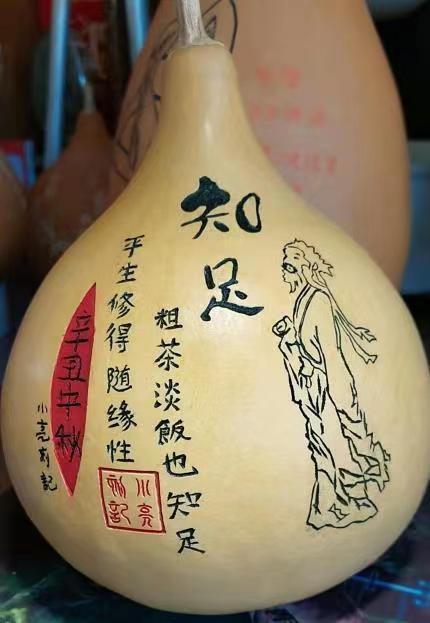 知足
粗茶淡飯也知足
平生修得随缘性
辛丑中秋
小亮刻記
小亮
刻記